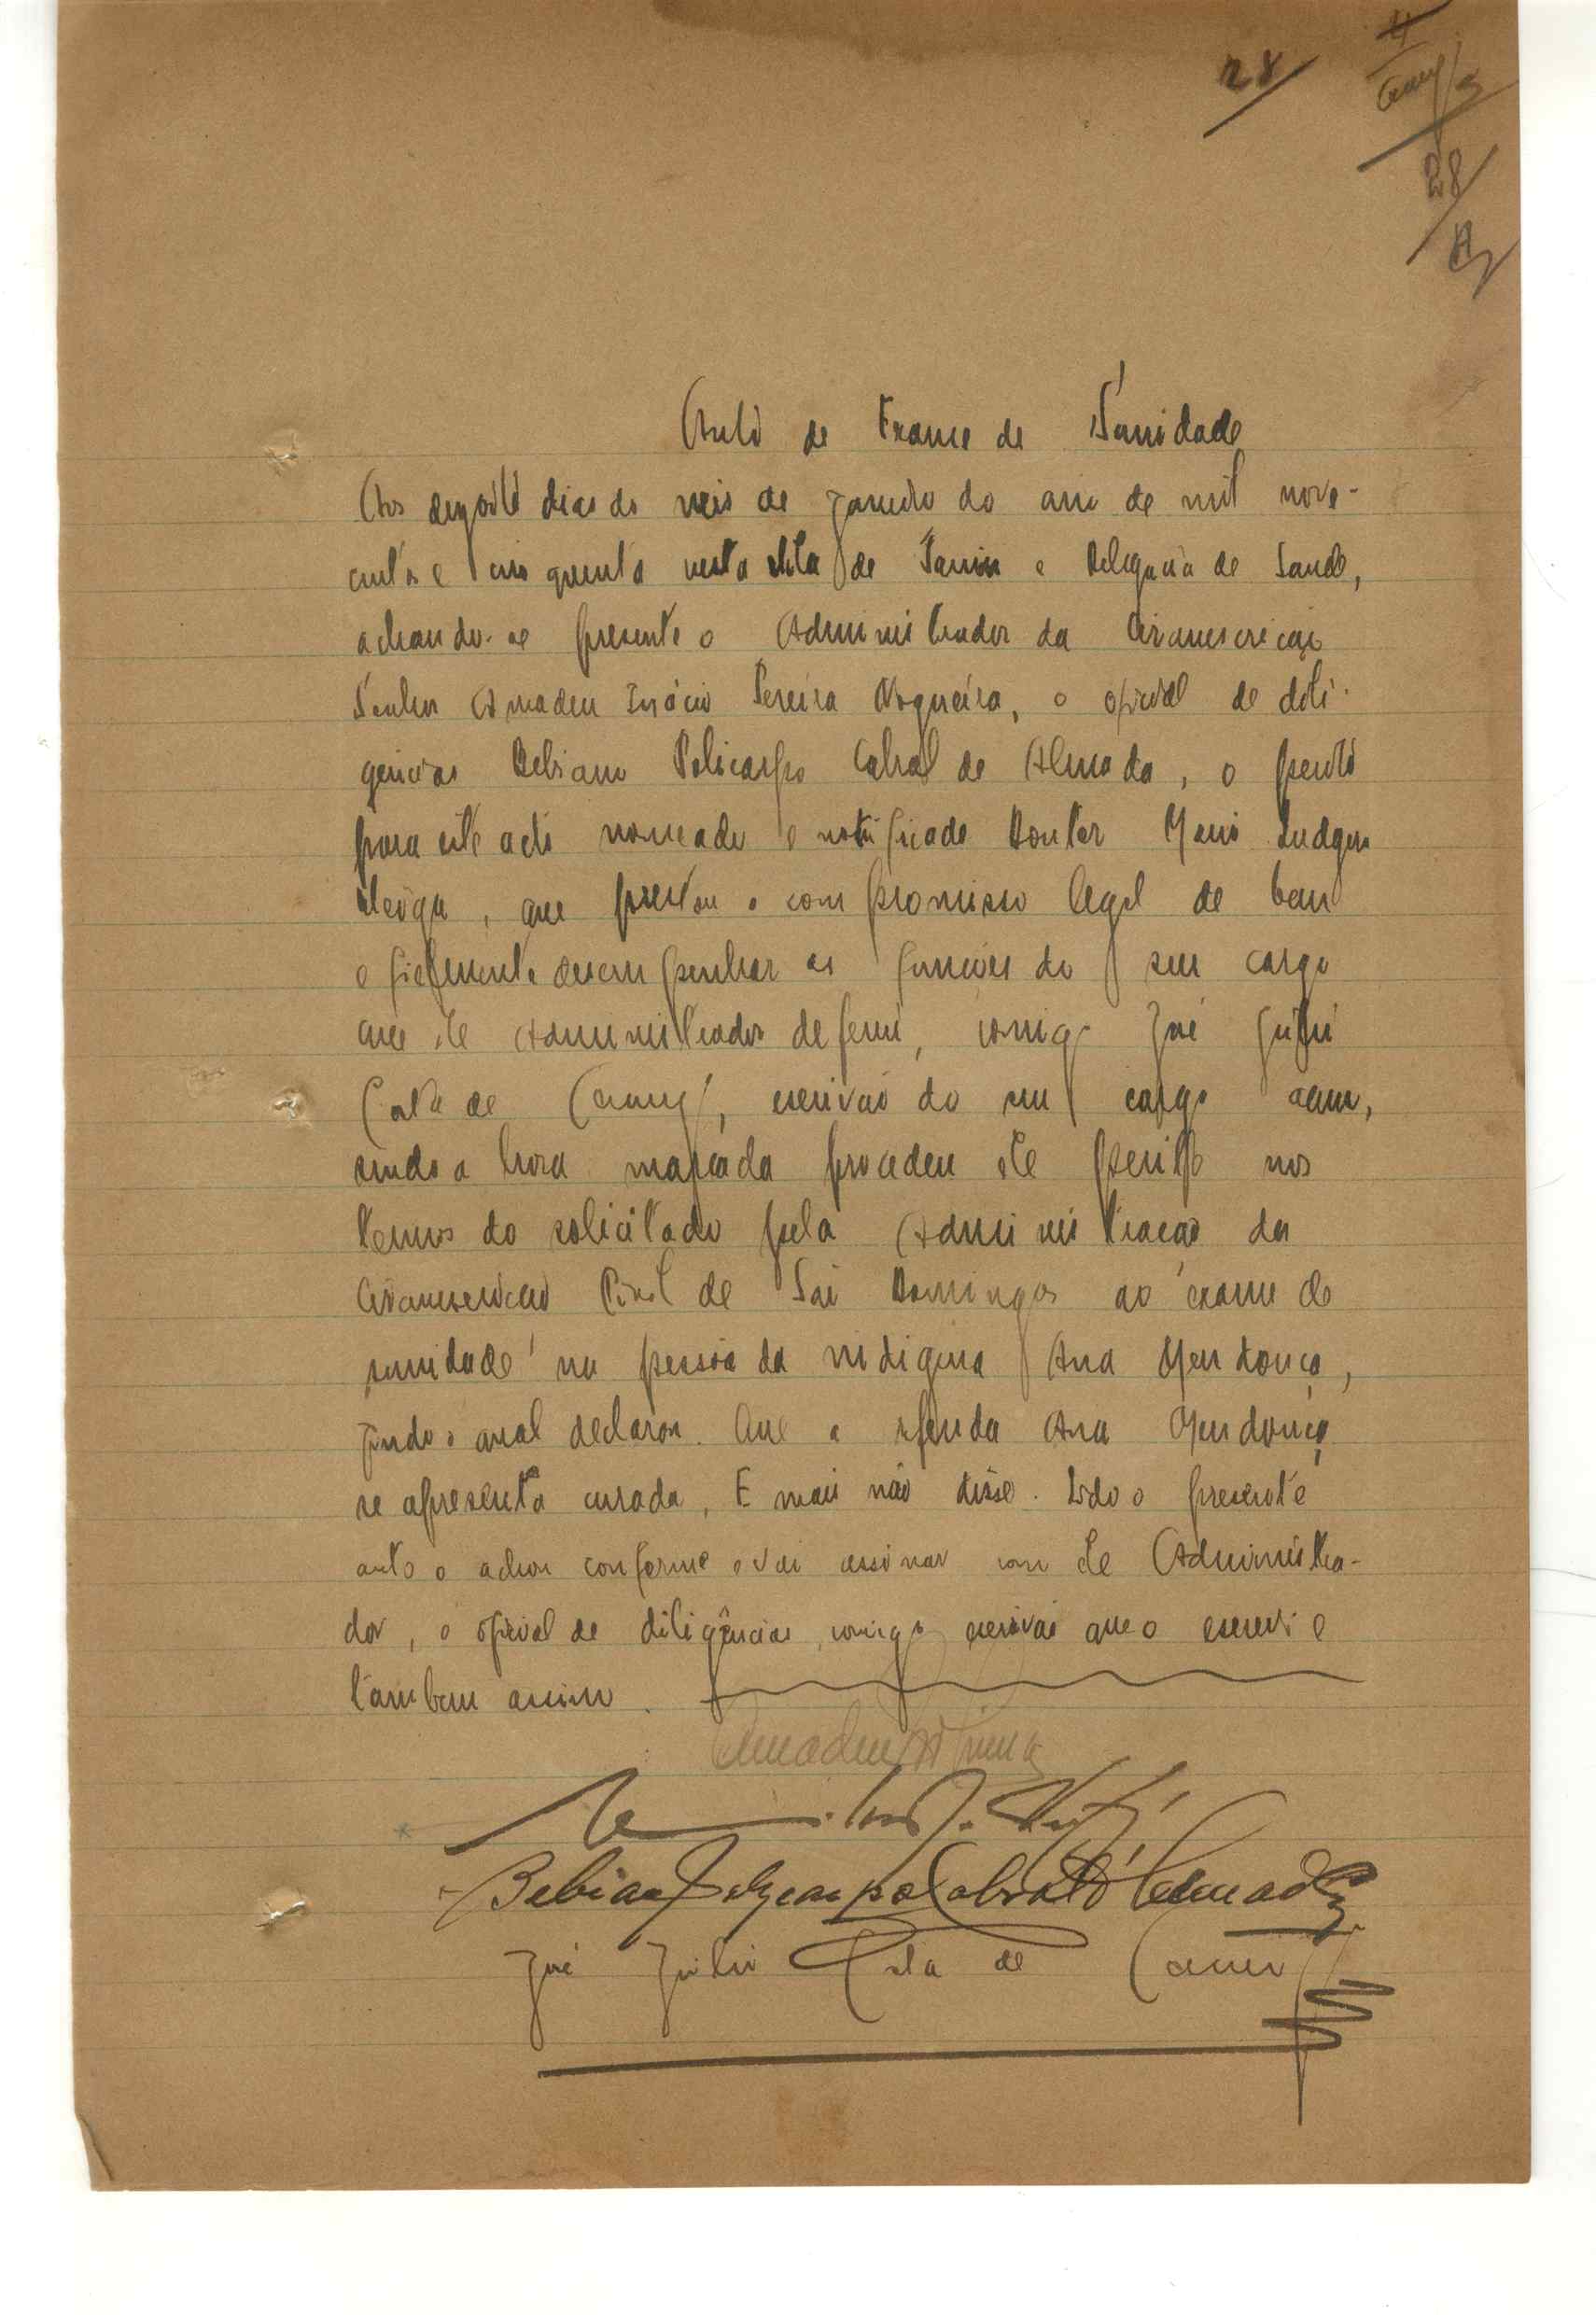 28
4
28
Auto de Exame de Sanidade
Aos dezoito dias do mês de Janeiro do ano de mil nove-
centos e cinquenta nesta vila de Farim e Delegacia de Saude,
achando-se presente o Administrador da Circunscrição
Senhor Amadeu Inácio Pereira Nogueira, o oficial de dili-
gências Bebiano Policarpo Cabral de Almada, o perito
para este acto nomeado e notificado Doutor
que prestou o compromisso legal de bem
e fielmente desempenhar as funções do seu cargo
que ele Administrador deferiu, comigo José Júlio
Costa de, escrivão do seu cargo
sendo a hora marcada procedeu ele perito nos
termos do solicitado pela Administração da
Circunscrição Civil de São Domingos ao exame de
sanidade na pessoa da indigena Ana Mendonça,
findo o qual declarou. Que a referida Ana Mendonça
se apresenta curada. E mais não disse. Lido o presente
auto o achou conforme e vai assinar com ele Administra-
dor, o oficial de diligências, comigo escrivão que o escrevi e
tambem assino.
Bebiano Policarpo Cabral d'Almada
José Júlio Costa de